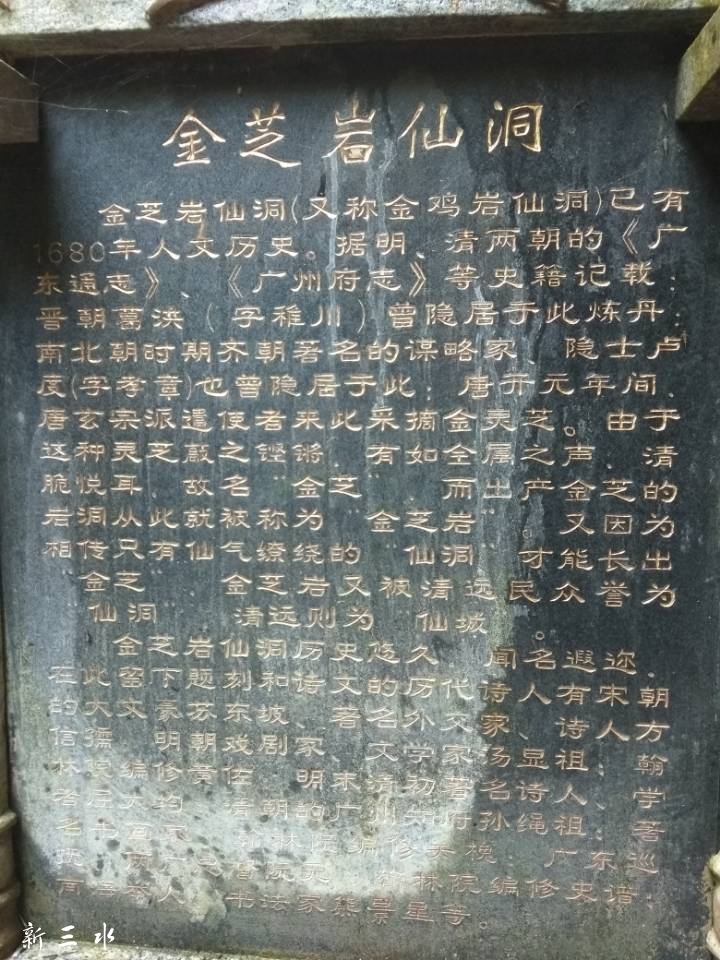 金芝岩仙洞
金芝岩仙洞(又称金鸡岩仙洞)已有
1680年人文历史。据明、清两朝的《广
东通志》、《广州府志》等史籍记载:
晋朝葛洪(字稚川)曾隐居于此炼丹;
南北朝时期齐朝著名的谋略家、隐士卢
度(字孝章)也曾隐居于此;唐开元年间、
唐玄宗派遣使者来此采摘金芙芝。由于
这种灵芝敲之铿锵有如金属之声.清
脆悦耳故名金芝而土产金芝的
岩洞从此就被称为金芝岩又因为
相传只有仙气缭绕的仙洞才能长出
金芝 金芝岩又被清远民众誉为
仙洞 清远则为仙坡。
金芝岩仙洞历史悠久 闻名遐迩.
在此留下题刻和诗文的历代诗人有宋朝
的大文豪苏东坡、著名外交家、诗人、方
信孺 明朝戏剧家文学家汤显祖、翰
林院编修黄佐 明末清初著名诗人、学
者屈大均 清朝的广州知府孙绳祖 著
名 编修 广东巡
林院编修
书法家熊景星等。
新三水